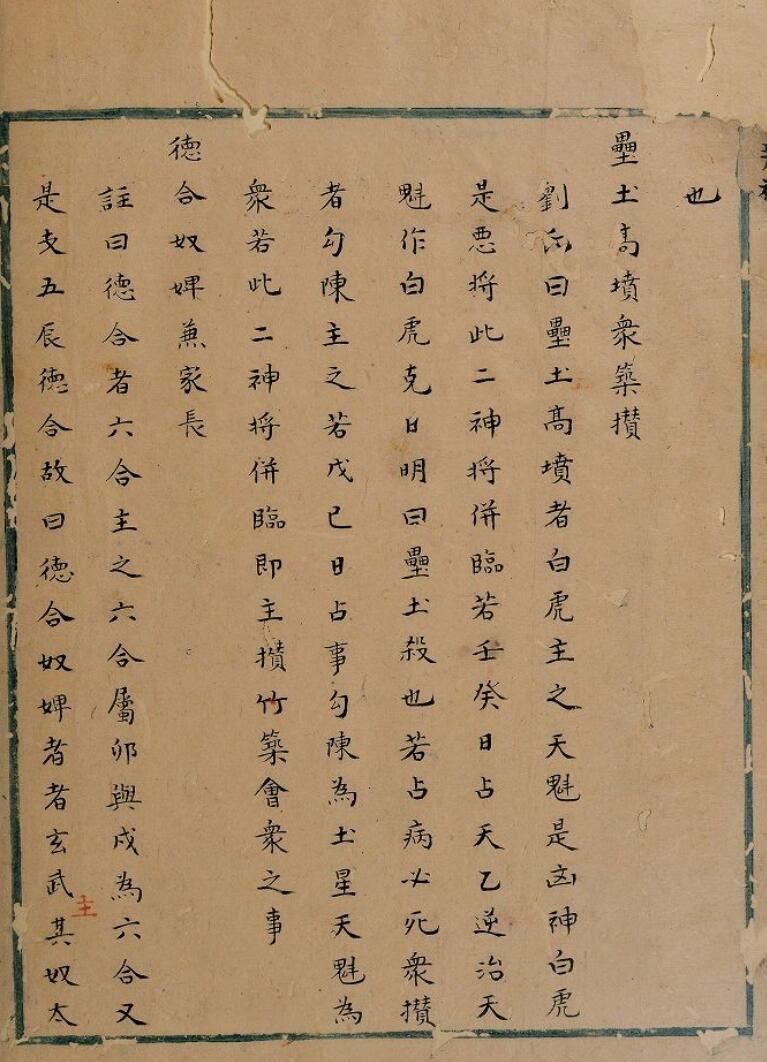 也
壘土髙墳衆築攢
劉氏曰壘土髙墳者白虎主之天魁是凶神白虎
是悪将此二神将併臨若壬癸日占天乙逆治天
魁作白虎克日明曰壘土殺也若占病必死衆攢
者勾陳主之若戊己日占事勾陳為土星天魁為
衆若此二神将併臨即主攢竹築會衆之事
德合奴婢兼家長
註曰德合者六合主之六合屬卯與戌為六合又
是支五辰德合故曰德合奴婢者者玄武主其奴太